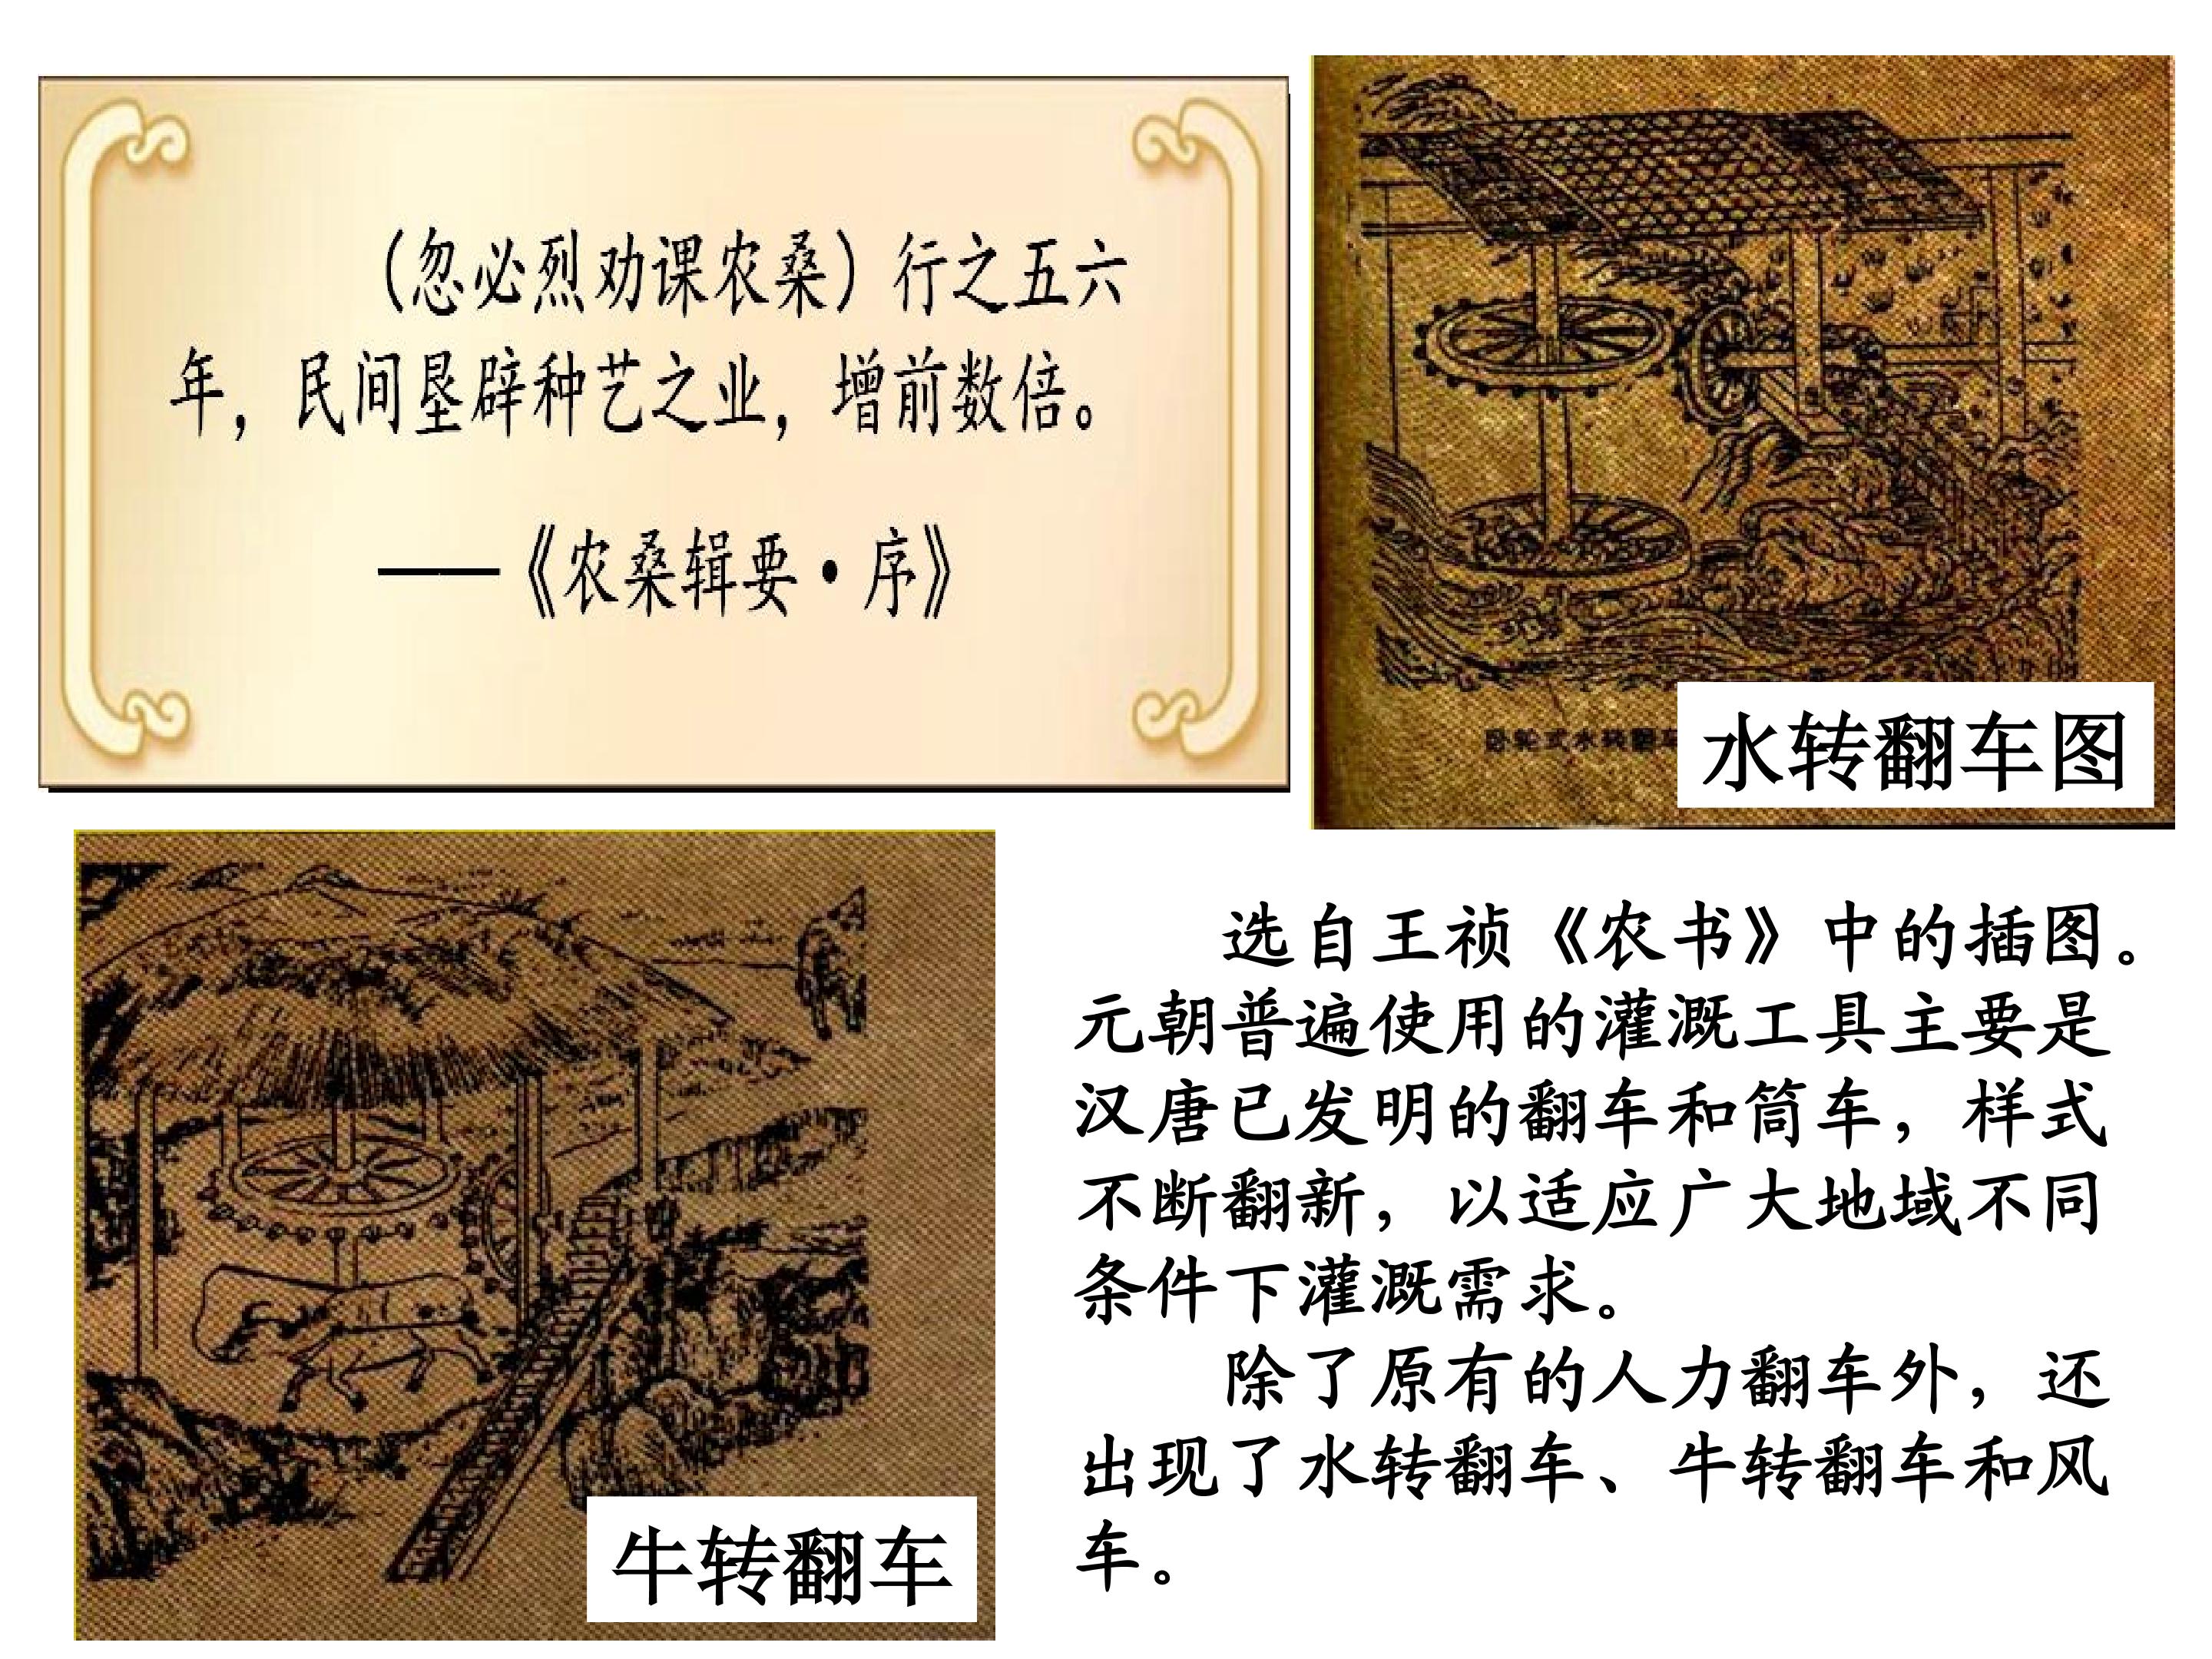 （忽必烈劝课农桑）行之五六
年，民间垦辟种艺之业，增前数倍。
——《农桑辑要·序》
卧轮式水转翻车
水转翻车图
选自王祯《农书》中的插图。
元朝普遍使用的灌溉工具主要是
汉唐已发明的翻车和筒车，样式
不断翻新，以适应广大地域不同
条件下灌溉需求。
除了原有的人力翻车外，还
出现了水转翻车、牛转翻车和风
车。
牛转翻车